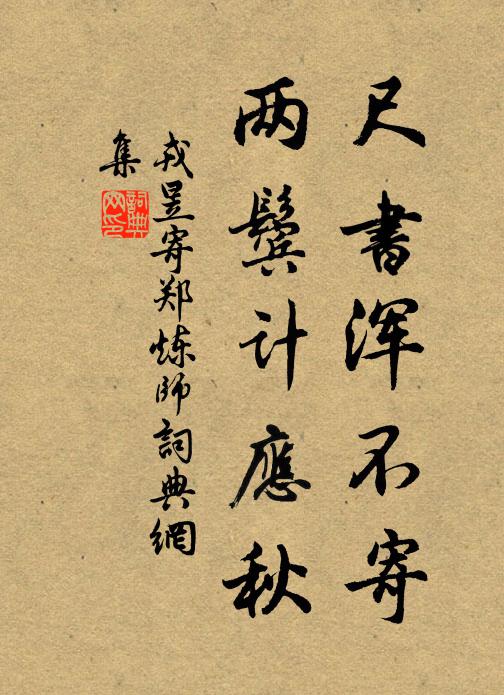 尺書浑不寄
两鬓计應秋
戎昱寄郑炼师詞典網
集
詞典网印